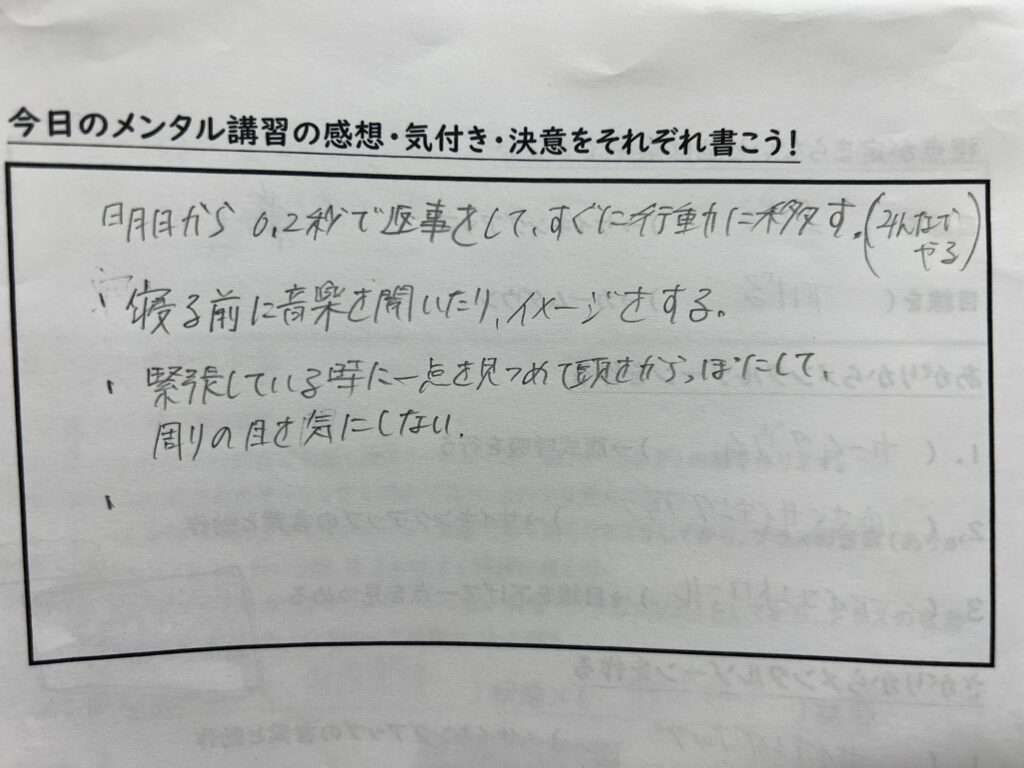 今日のメンタル講習の感想・気付き・決意をそれぞれ書こう!
明日から 0.2秒で返事をして、すぐに行動に移す。(みんなで
やる)
・寝る前に音楽を聞いたり、イメージをする。
・緊張している時に一点を見つめて頭をからっぽにして、
周りの目を気にしない.
・